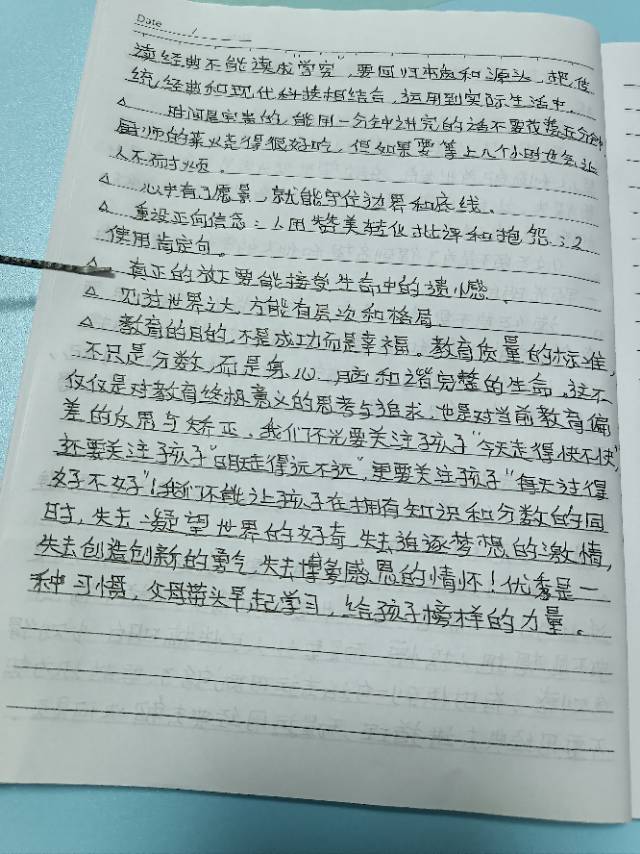 Date
读经典不能读成"学究",要回归本真和源头,把传
统经典和现代科技相结合,运用到实际生活中。
△ 时间是宝贵的,能用一分钟讲完的话不要花费五分钟
厨师的菜火走得很好吃,但如果要等上几个小时也会让
人不耐烦。
△ 心中有了愿景,就能守住边界和底线。
△ 重设正向信念:1.用赞美转化批评和抱怨;2
使用肯定句。
△ 真正的放下要能接受生命中的遗憾。
△ 见过世界之大,方能有层次和格局
△ 教育的目的,不是成功而是幸福。教育质量的标准,
不只是分数,而是身、心、脑和谐完整的生命,这不
仅仅是对教育终极意义的思考与追求,也是对当前教育偏
差的反思与矫正。我们不光要关注孩子"今天走得快不快"
还要关注孩子"明天走得远不远",更要关注孩子"每天过得
好不好"!我们不能让孩子在拥有知识和分数的同
时,失去凝望世界的好奇,失去追逐梦想的激情,
失去创造创新的勇气,失去博爱感恩的情怀!优秀是一
种习惯,父母带头早起学习,给孩子榜样的力量。